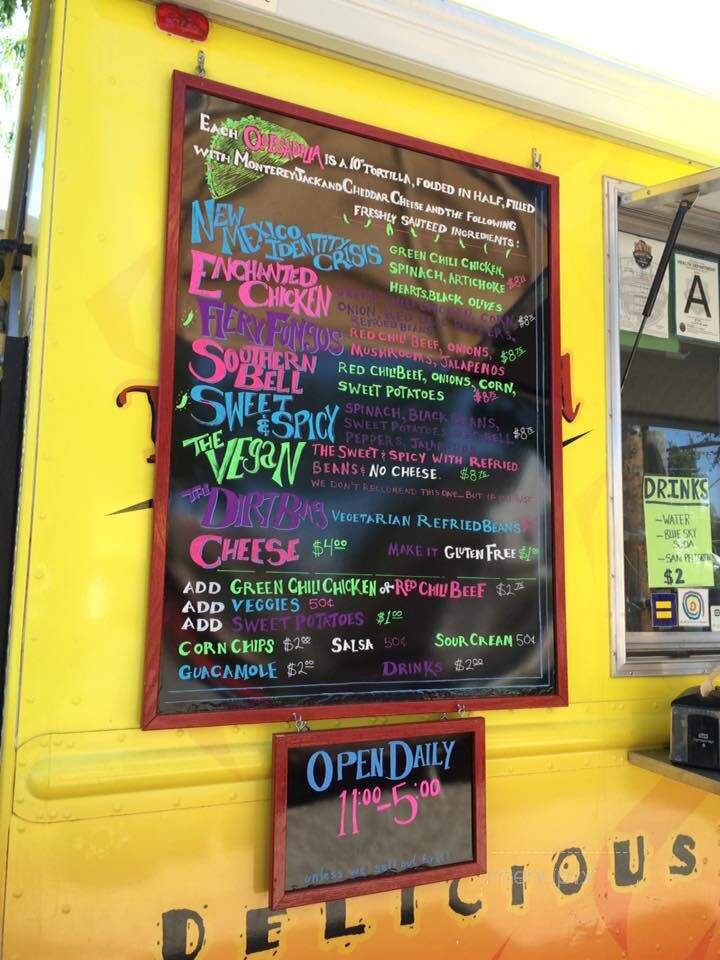 EACH QUESADILLA IS A 10" TORTILLA, FOLDED IN HALF, FILLED
WITH MONTEREY JACK AND CHEDDAR CHEESE AND THE FOLLOWING
FRESHLY SAUTEED INGREDIENTS:
NEW MEXICO IDENTITY CRISIS
GREEN CHILI CHICKEN,
SPINACH, ARTICHOKE
HEARTS, BLACK OLIVES
ENCHANTED CHICKEN
CORN,
ONION, RED BELL PEPPERS,
REFRIED BEANS
FIERY FUNGUS
RED CHILI BEEF, ONIONS,
MUSHROOMS, JALAPENOS
SOUTHERN BELL
RED CHILI BEEF, ONIONS, CORN,
SWEET POTATOES
SWEET & SPICY
SPINACH, BLACK BEANS,
SWEET POTATOES, BELL
PEPPERS,
THE VEGAN
THE SWEET & SPICY WITH REFRIED
BEANS & NO CHEESE.
WE DON'T RECCOMEND THIS ONE... BUT
THE DIRTBAG VEGETARIAN REFRIED BEANS
CHEESE $4.00 MAKE IT GLUTEN FREE
ADD GREEN CHILI CHICKEN OR RED CHILI BEEF
ADD VEGGIES 50¢
ADD SWEET POTATOES $1.00
CORN CHIPS $2.00 SALSA 50¢ SOUR CREAM 50¢
GUACAMOLE $2.00 DRINKS $2.00
OPEN DAILY
11:00-5:00
unless we sell out first!
DELICIOUS
A
DRINKS
-WATER
-BLUE SKY
SODA
$2